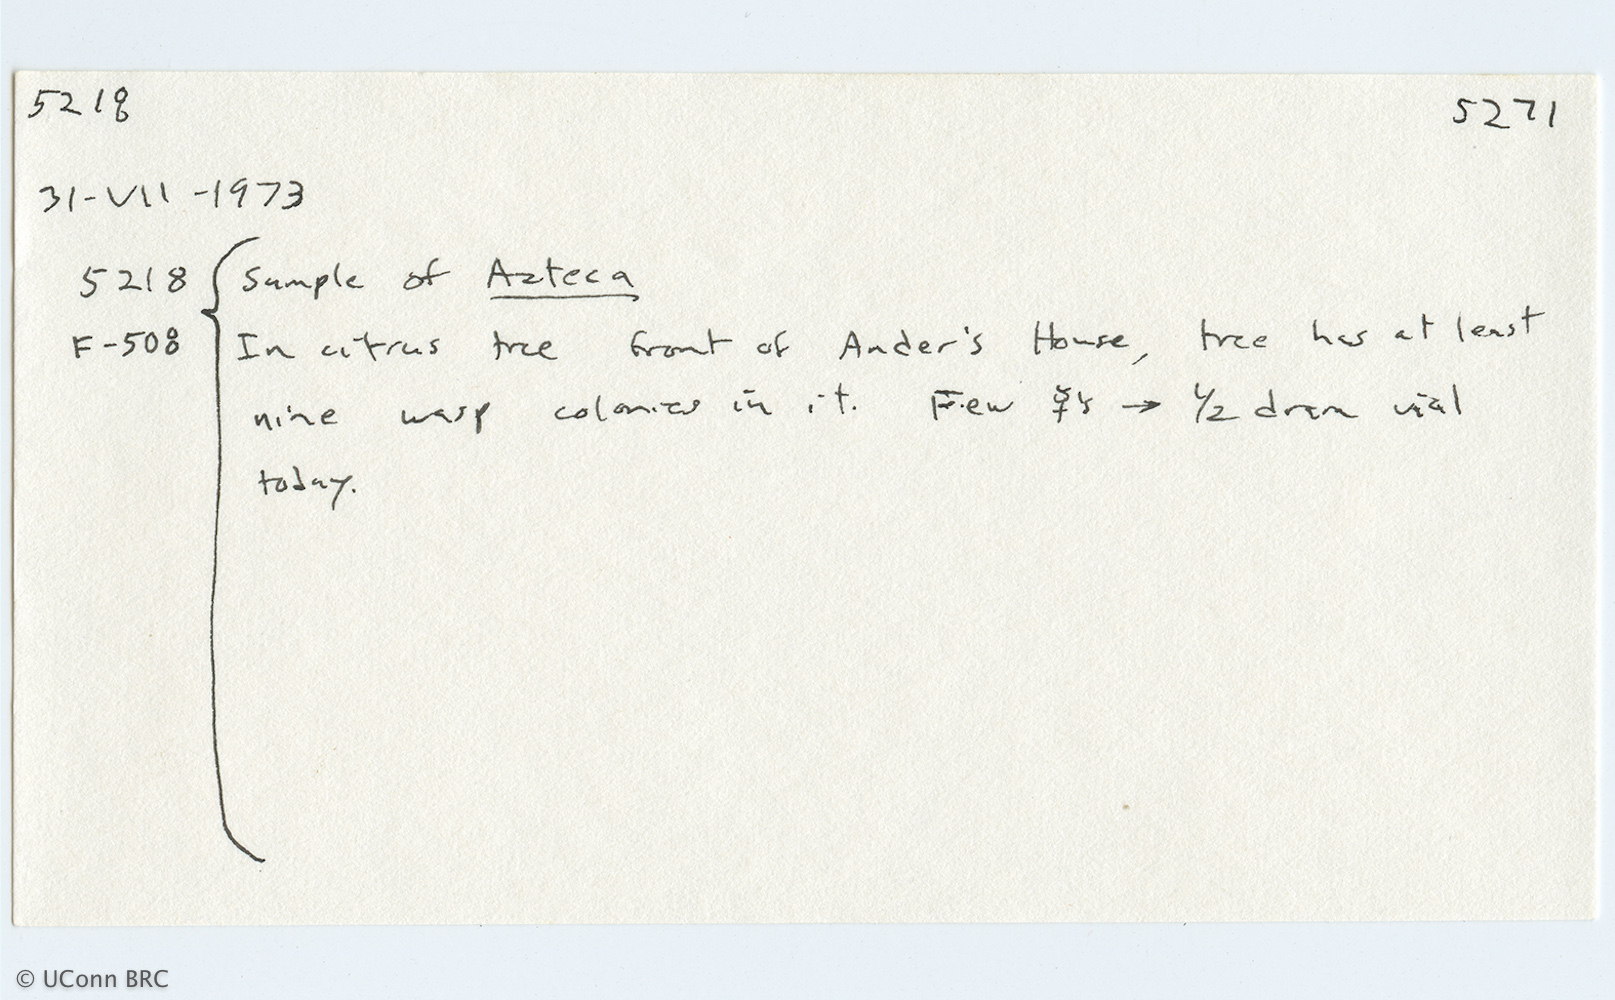 5218 5271
31-VII-1973
5218 Sample of Azteca
F-508 In citrus tree front of Ander's House, tree has at least
nine wasp colonies in it. Few ☿'s → 1/2 dram vial
today.
© UConn BRC